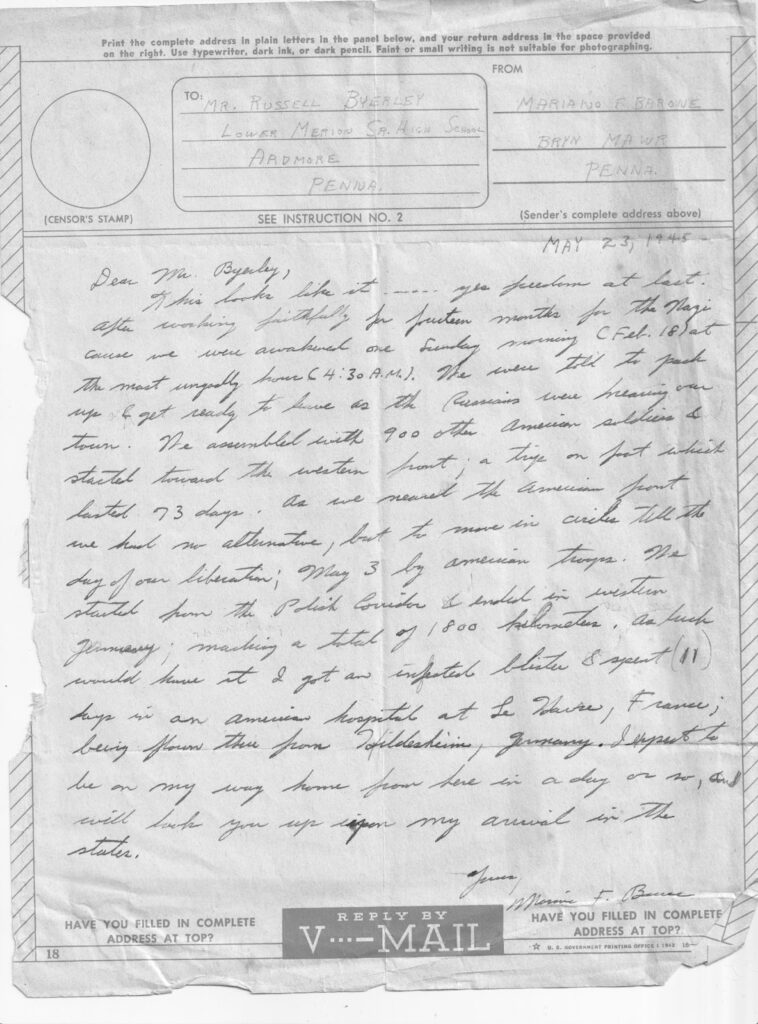 Print the complete address in plain letters in the panel below, and your return address in the space provided
on the right. Use typewriter, dark ink, or dark pencil. Faint or small writing is not suitable for photographing.
FROM
TO:
MR. RUSSELL BYERLEY
LOWER MERION SR. HIGH SCHOOL
ARDMORE
PENNA.
MARIANO F. BARONE
BRYN MAWR
PENNA.
(CENSOR'S STAMP)
SEE INSTRUCTION NO. 2
(Sender's complete address above)
MAY 23, 1945
Dear Mr. Byerley,
This looks like it ...... yes freedom at last.
After working faithfully for fourteen months for the Nazi
cause we were awakened one Sunday morning (Feb. 18) at
the most ungodly hour (4:30 A.M.). We were told to pack
up & get ready to leave as the Russians were nearing our
town. We assembled with 900 other American soldiers &
started toward the western front; a trip on foot which
lasted 73 days. As we neared the American front
we had no alternative, but to move in circles till the
day of our liberation; May 3 by American troops. We
started from the Polish Corridor & ended in western
Germany; marking a total of 1800 kilometers. As luck
would have it I got an infected blister & spent (11)
days in an American hospital at Le Havre, France;
being flown there from Hildesheim, Germany. I expect to
be on my way home from here in a day or so, and
will look you up upon my arrival in the
states.
Yours,
F. Barone
HAVE YOU FILLED IN COMPLETE
ADDRESS AT TOP?
REPLY BY
V···—MAIL
HAVE YOU FILLED IN COMPLETE
ADDRESS AT TOP?
18
☆ U. S. GOVERNMENT PRINTING OFFICE : 1942